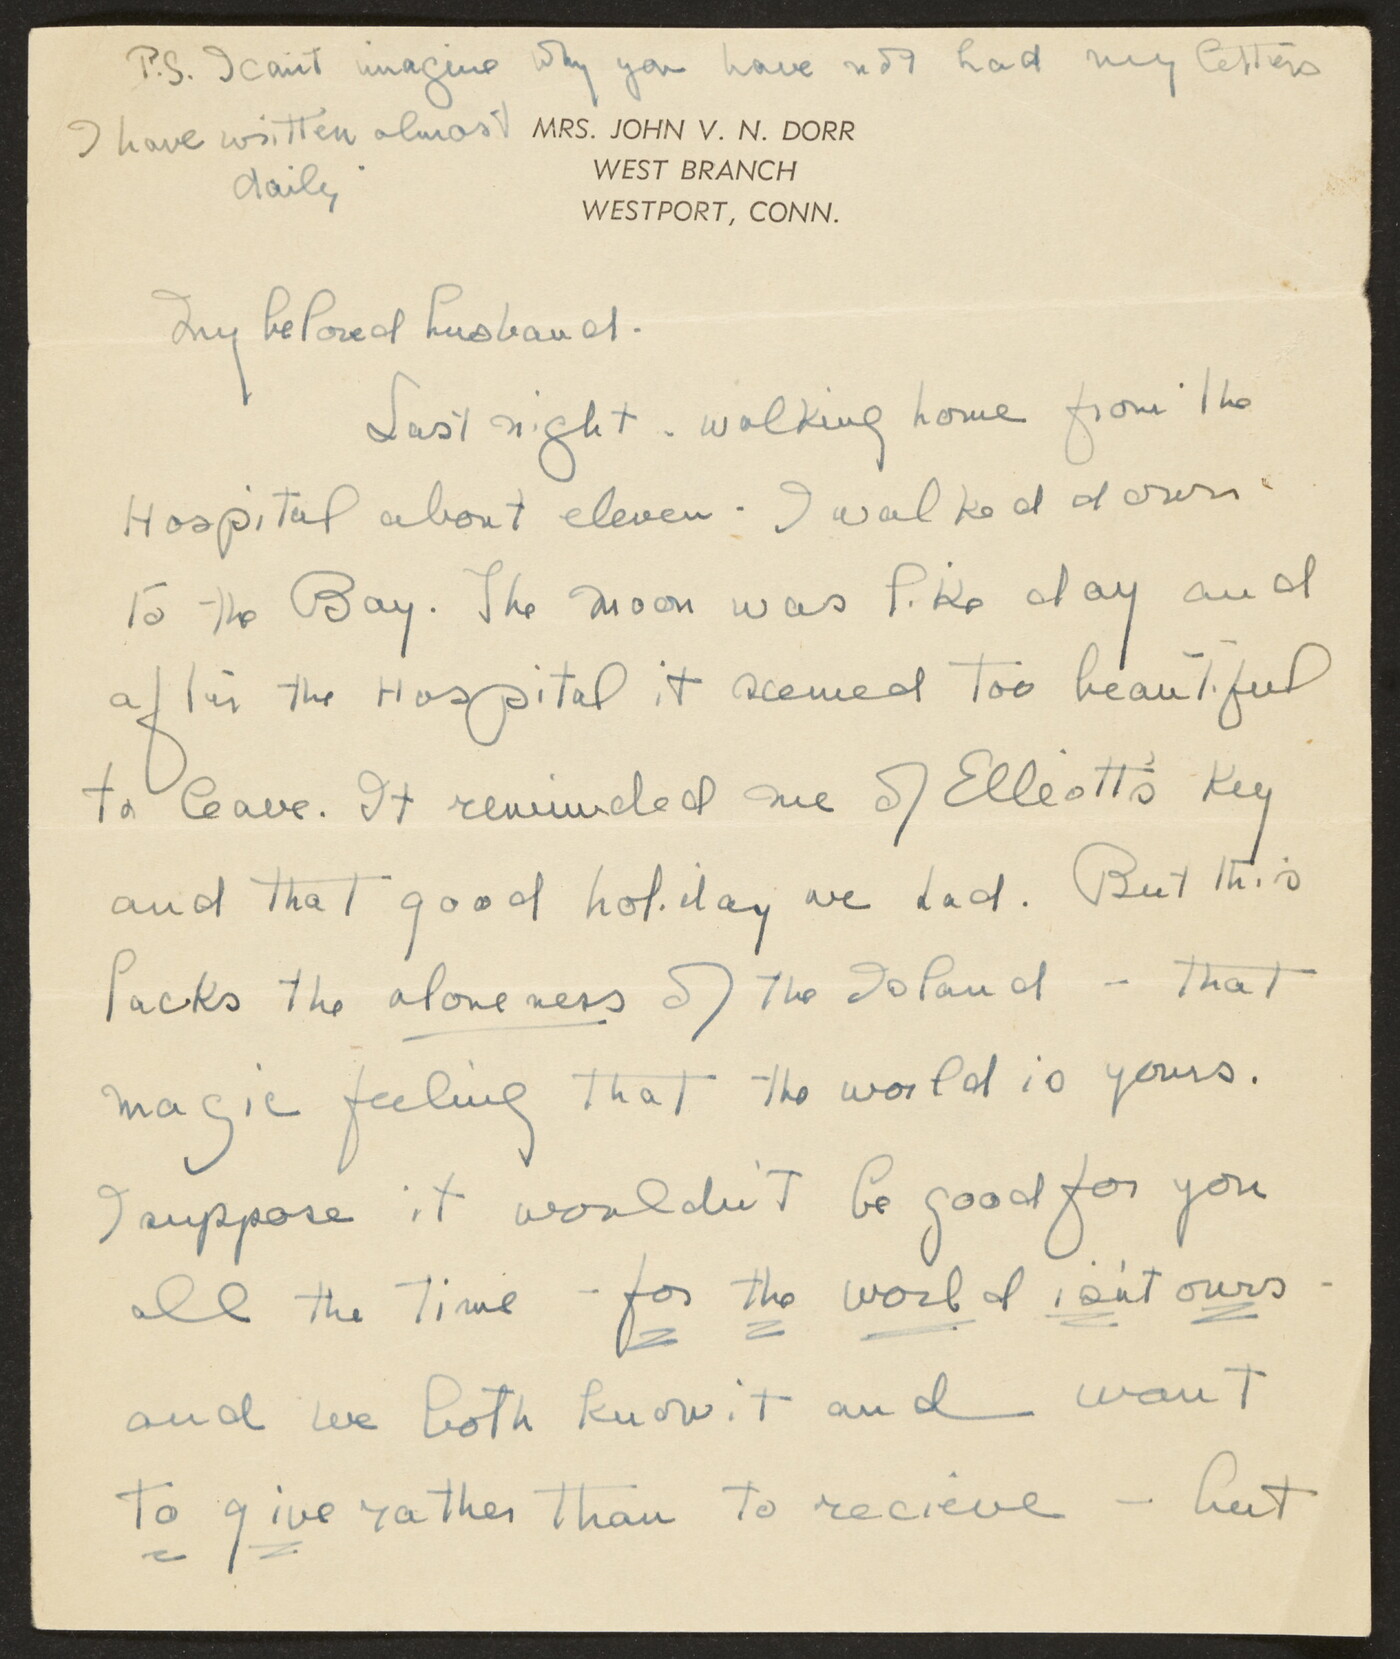 P.S. I can't imagine why you have not had my letters
I have written almost
daily
MRS. JOHN V. N. DORR
WEST BRANCH
WESTPORT, CONN.
My beloved husband.
Last night. walking home from the
Hospital about eleven. I walked down
to the Bay. The moon was like day and
after the Hospital it seemed too beautiful
to leave. It reminded me of Elliott's Key
and that good holiday we had. But this
lacks the aloneness of the Island - that
magic feeling that the world is yours.
I suppose it wouldn't be good for you
all the time - for the world isn't ours -
and we both know it and want
to give rather than to recieve - but